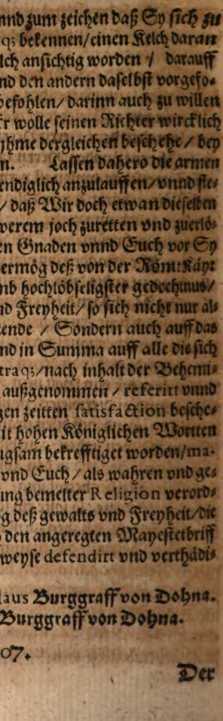 nnd zum zeichen daß Sy sich zu
q; bekennen/einen Kelch daran
lch ansichtig worden / darauff
nd den andern daselbst vorgefo-
befohlen/darinn auch zu willen
Er wolle seinen Richter wircklich
yhme dergleichen beschehe / bey
n. Lassen dahero die armen
endiglich anzulauffen/vnnd fle-
/ daß Wir doch etwan dieselben
verem joch zuretten vnd zuerlö-
en Gnaden vnnd Euch vor Sy
ermög deß von der Röm: Käys
nd hochlöbseligster gedechtnus/
nd Freyheit/so sich nicht nur al-
ende / Sondern auch auff das
nd in Summa auff alle die sich
traq;/nach inhalt der Behemi-
außgenommen / referirt vnnd
gen zeitten satisfaction besche-
it hohen Königlichen Wortten
ugsam bekrefftiget worden/ma-
vnd Euch/als wahren vnd ge-
ung bemelter Religion verord-
g deß gewalts vnd Freyheit/die
den angeregten Mayestetbriff
weyse defendirt vnd verthädi-
laus Burggraff von Dohna.
Burggraff von Dohna.
07.
Der